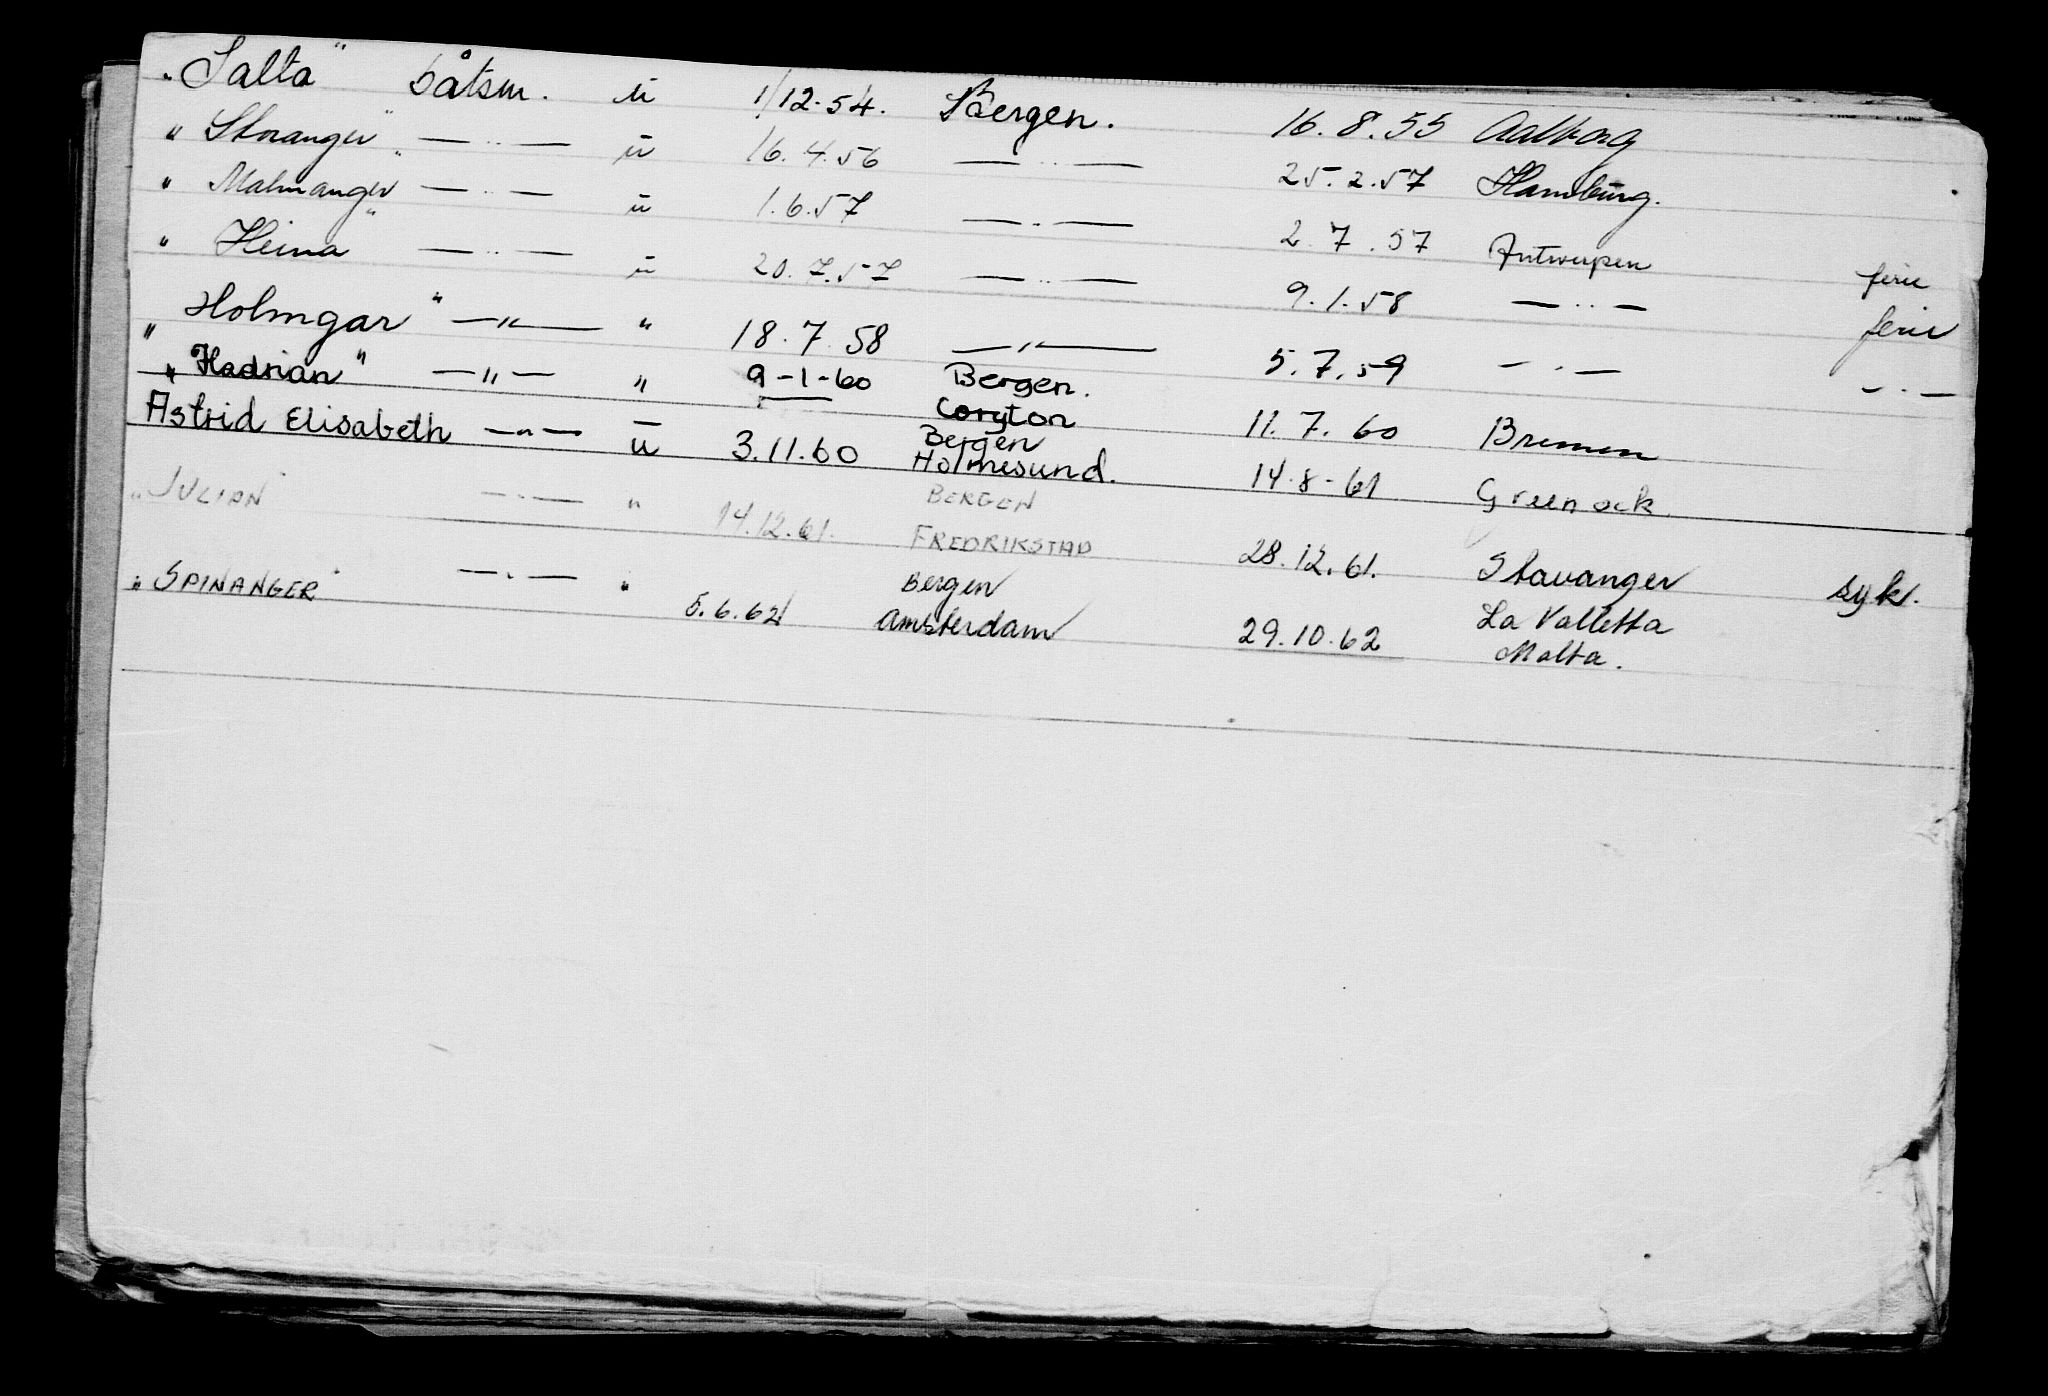 „Salta“ båtsm. u 1/12-54. Bergen. 16.8.55 Aalborg
„Storanger“ — „ — u 16.4.56 — „ — 25.2.57 Hamburg.
„Malmanger“ — „ — u 1.6.57 — „ — 2.7.57 Antwerpen ferie
„Heina“ — „ — u 20.7.57 — „ — 9.1.58 — „ — ferie
„Holmgar“ — „ — „ 18.7.58 — „ — 5.7.59 — „ — — „ —
„Hadrian“ — „ — „ 9-1-60 Bergen. Coryton 11.7.60 Bremen
Astrid Elisabeth — „ — u 3.11.60 Bergen Holmesund. 14.8-61 Greenock.
„JULIAN“ — „ — „ 14.12.61. BERGEN FREDRIKSTAD 28.12.61. Stavanger syk.
„SPINANGER“ — „ — „ 5.6.62 Bergen Amsterdam 29.10.62 La Valletta
Malta.